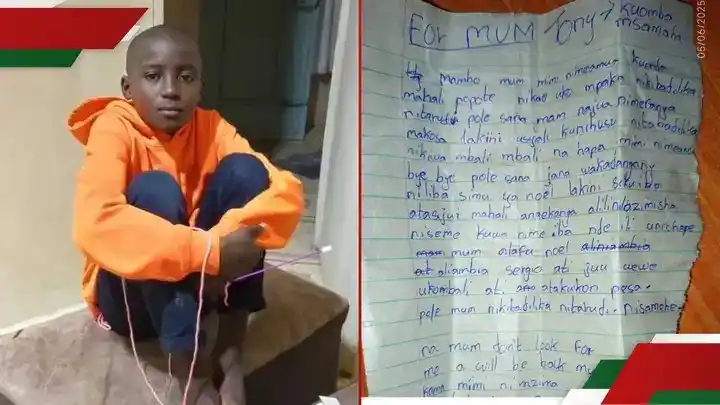 For MUM Tony → kuomba
msamaha
05/06/2025
Mambo mum mimi nimeamua kuenda
mahali popote nikae uko mpaka nikibadilika
nitarudi pole sana mam najua nimefanya
makosa lakini usijali kunihusu nitabadilika
nikiwa mbali mbali na hapa mimi nimeenda
bye bye pole sana jana wakadanganya
niliba simu ya noel lakini sikuiba
atasijui mahali angekanga alinilazimisha
niseme kuwa nimeiba nde iti
mum alafu noel aliniambia
aliambia sergio ati juu uewe
ukombali ati atakukon pesa.
pole mum nikibadilika nitarudi. nisamehe.
na mum don't look For
me a will be back
kama mimi ni mzima